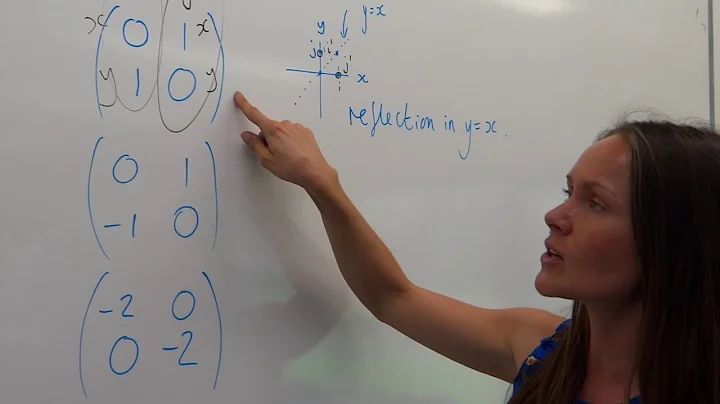 x 0 1 x
y 1 0 y
y y=x
j i' j'
i x
reflection in y=x.
0 1
-1 0
-2 0
0 -2